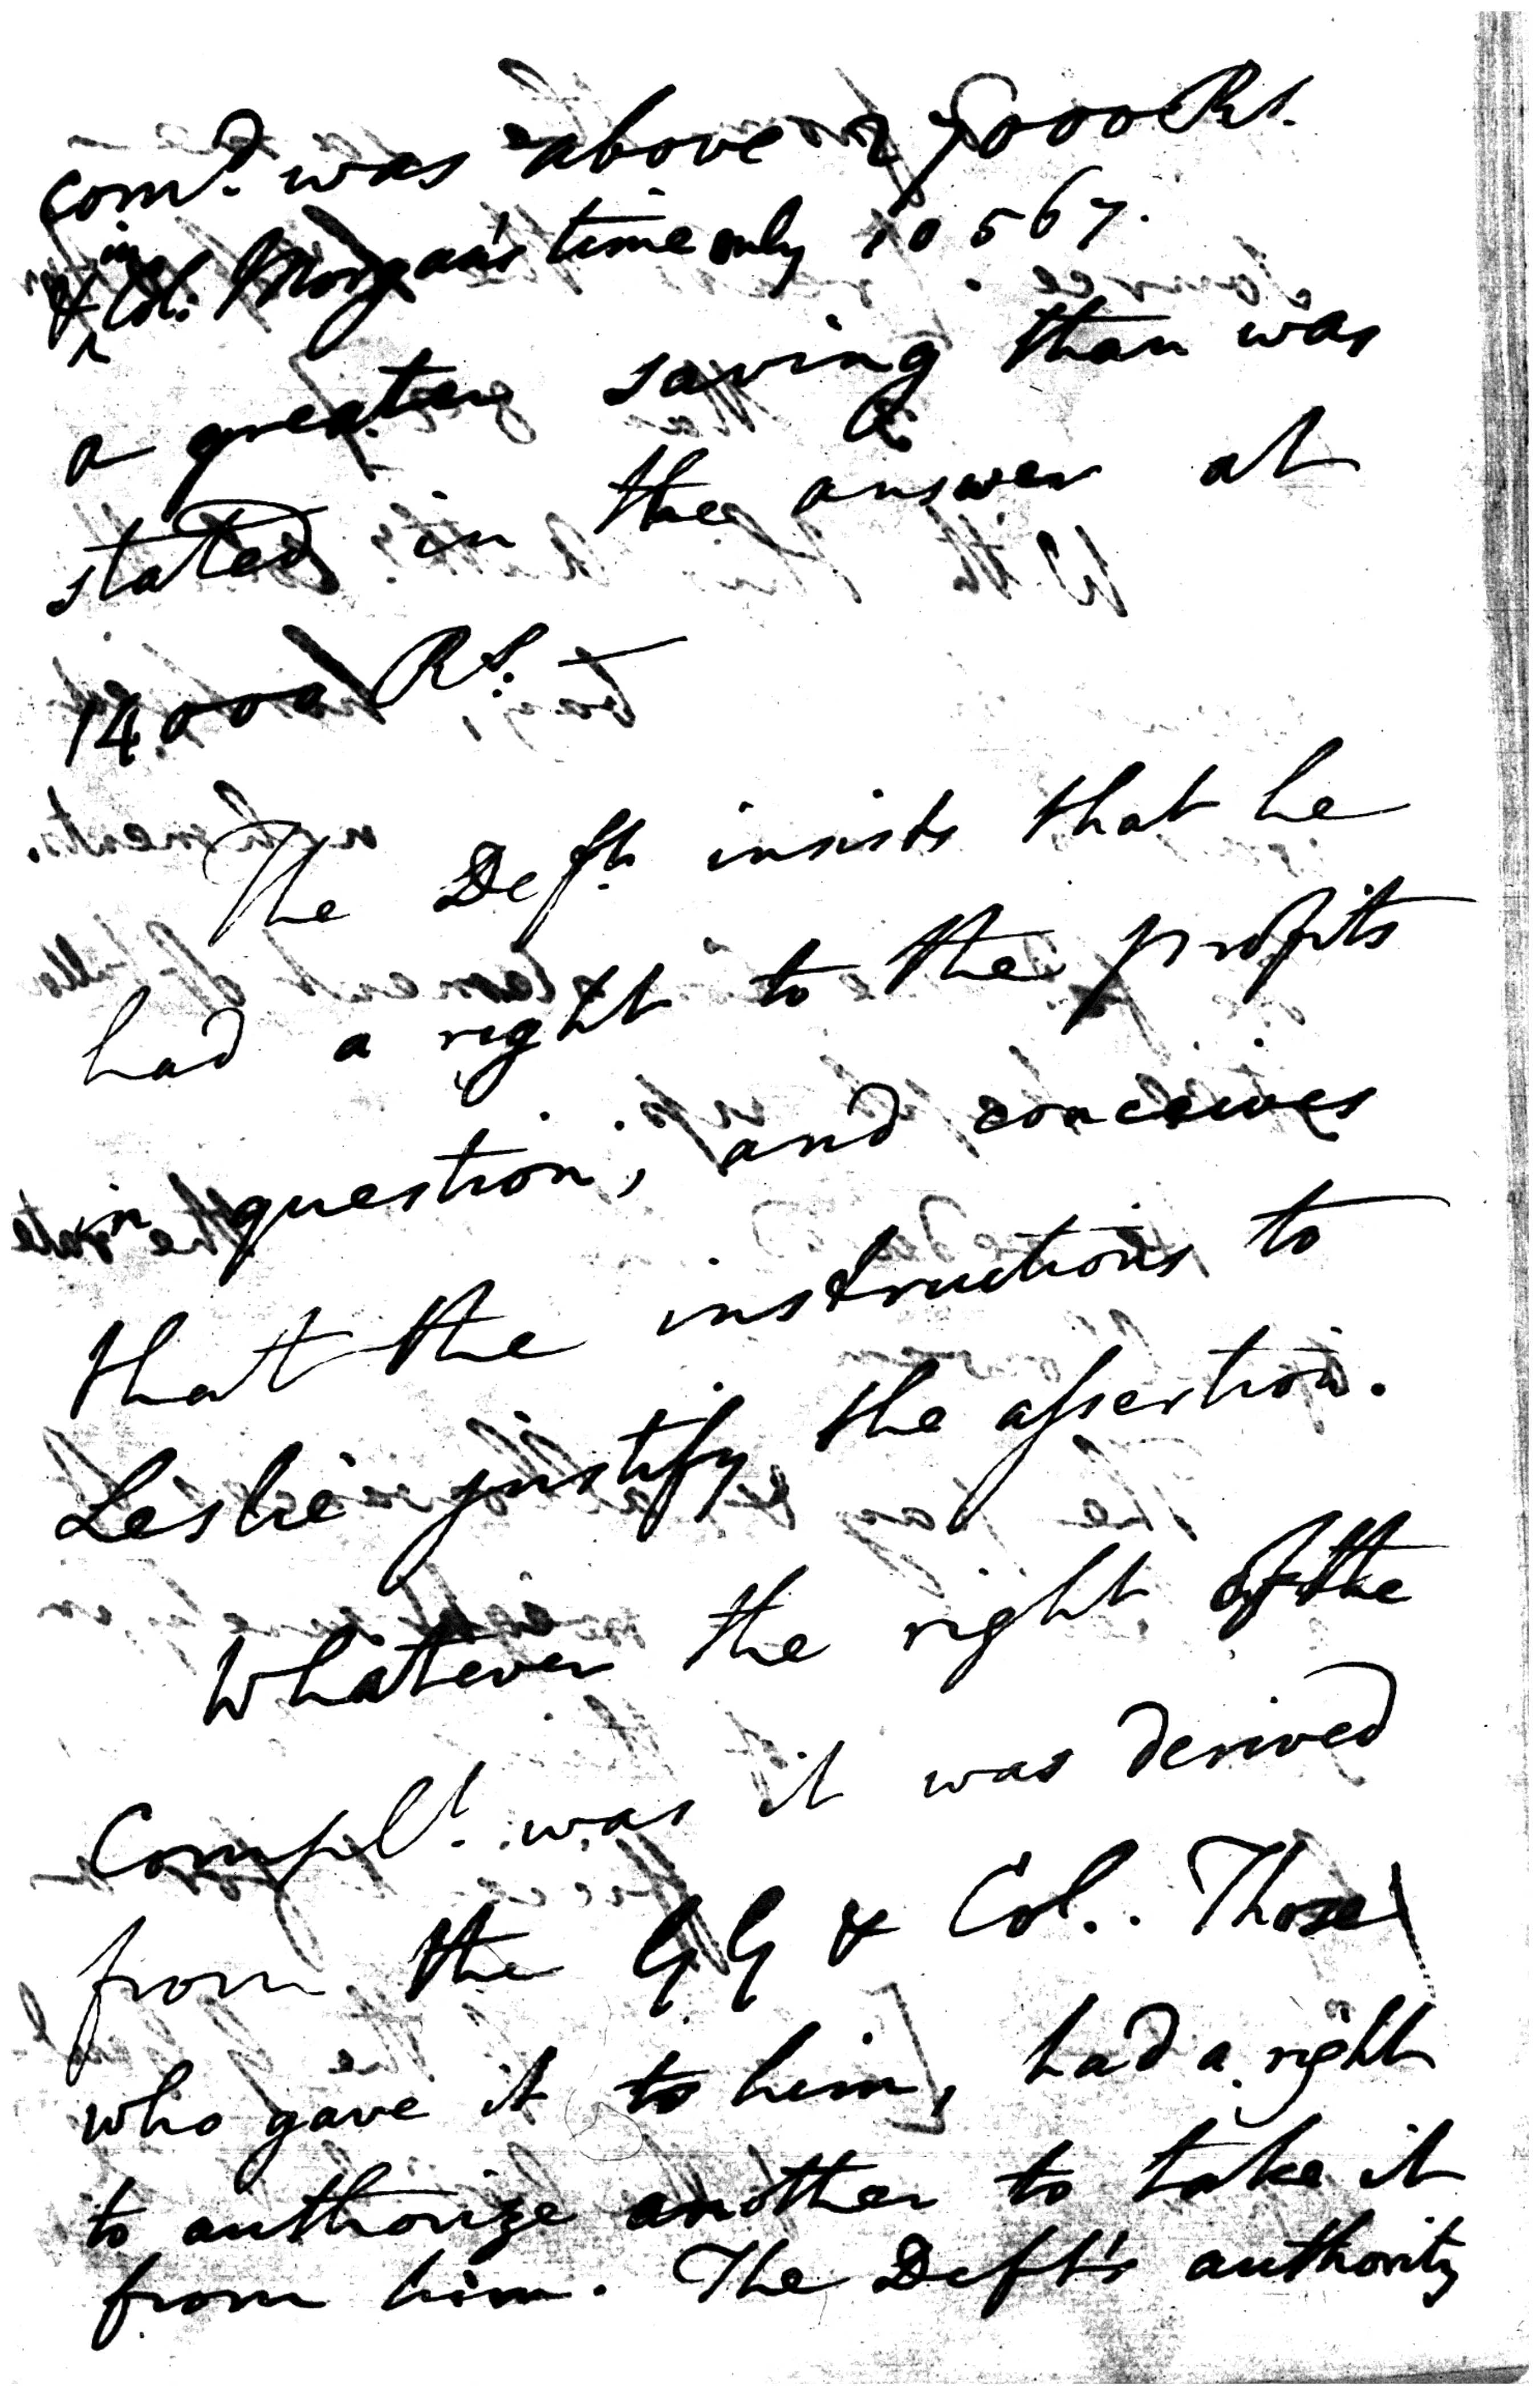 com.d was above 27000 Rs.
& in Col. Morgan's time only 10567.
a greater saving than was
stated in the answer at
14000 Rs. —
The Deft. insists that he
had a right to the profits
in question, and conceives
that the instructions to
Leslie justify the assertion.
Whatever the right of the
Complt. was it was derived
from the GG & Col.. Those
who gave it to him, had a right
to authorize another to take it
from him. The Deft's authority